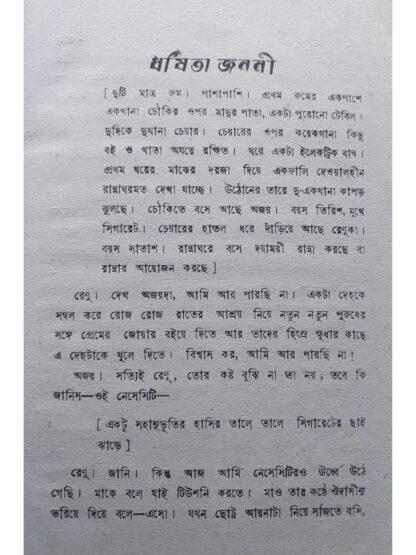 ধর্ষিতা জননী
[ দুটি মাত্র রুম। পাশাপাশি। প্রথম রুমের একপাশে
একখানা চৌকির ওপর মাদুর পাতা, একটা পুরোনো টেবিল।
দুদিকে দুখানা চেয়ার। চেয়ারের ওপর কয়েকখানা কিছু
বই ও খাতা অযত্নে রক্ষিত। ঘরে একটা ইলেকট্রিক বাল্ব।
প্রথম ঘরের মাঝের দরজা দিয়ে একফালি দেওয়ালহীন
রান্নাঘরমত দেখা যাচ্ছে। উঠোনের তারে দু-একখানা কাপড়
ঝুলছে। চৌকিতে বসে আছে অজয়। বয়স তিরিশ, মুখে
সিগারেট। চেয়ারের হাতল ধরে দাঁড়িয়ে আছে রেণুকা।
বয়স সাতাশ। রান্নাঘরে বসে দয়াময়ী রান্না করছে বা
রান্নার আয়োজন করছে ]
রেণু। দেখ অজয়দা, আমি আর পারছি না। একটা দেহকে
সম্বল করে রোজ রোজ রাতের আশ্রয় নিয়ে নতুন নতুন পুরুষের
সঙ্গে প্রেমের জোয়ার বইয়ে দিতে আর তাদের হিংস্র ক্ষুধার কাছে
এ দেহটাকে খুলে দিতে। বিশ্বাস কর, আমি আর পারছি না!
অজয়। সত্যিই রেণু, তোর কষ্ট বুঝি না তা নয়; তবে কি
জানিস—ওই নেসেসিটি—
[ একটু সহানুভূতির হাসির তালে তালে সিগারেটের ছাই
ঝাড়ে ]
রেণু। জানি। কিন্তু আজ আমি নেসেসিটিরও ঊর্ধ্বে উঠে
গেছি। মাকে বলে যাই টিউশনি করতে। মাও তার কণ্ঠে ঔদাসীন্য
ভরিয়ে দিয়ে বলে—এসো। যখন ছোট্ট আয়নাটা নিয়ে সাজতে বসি,